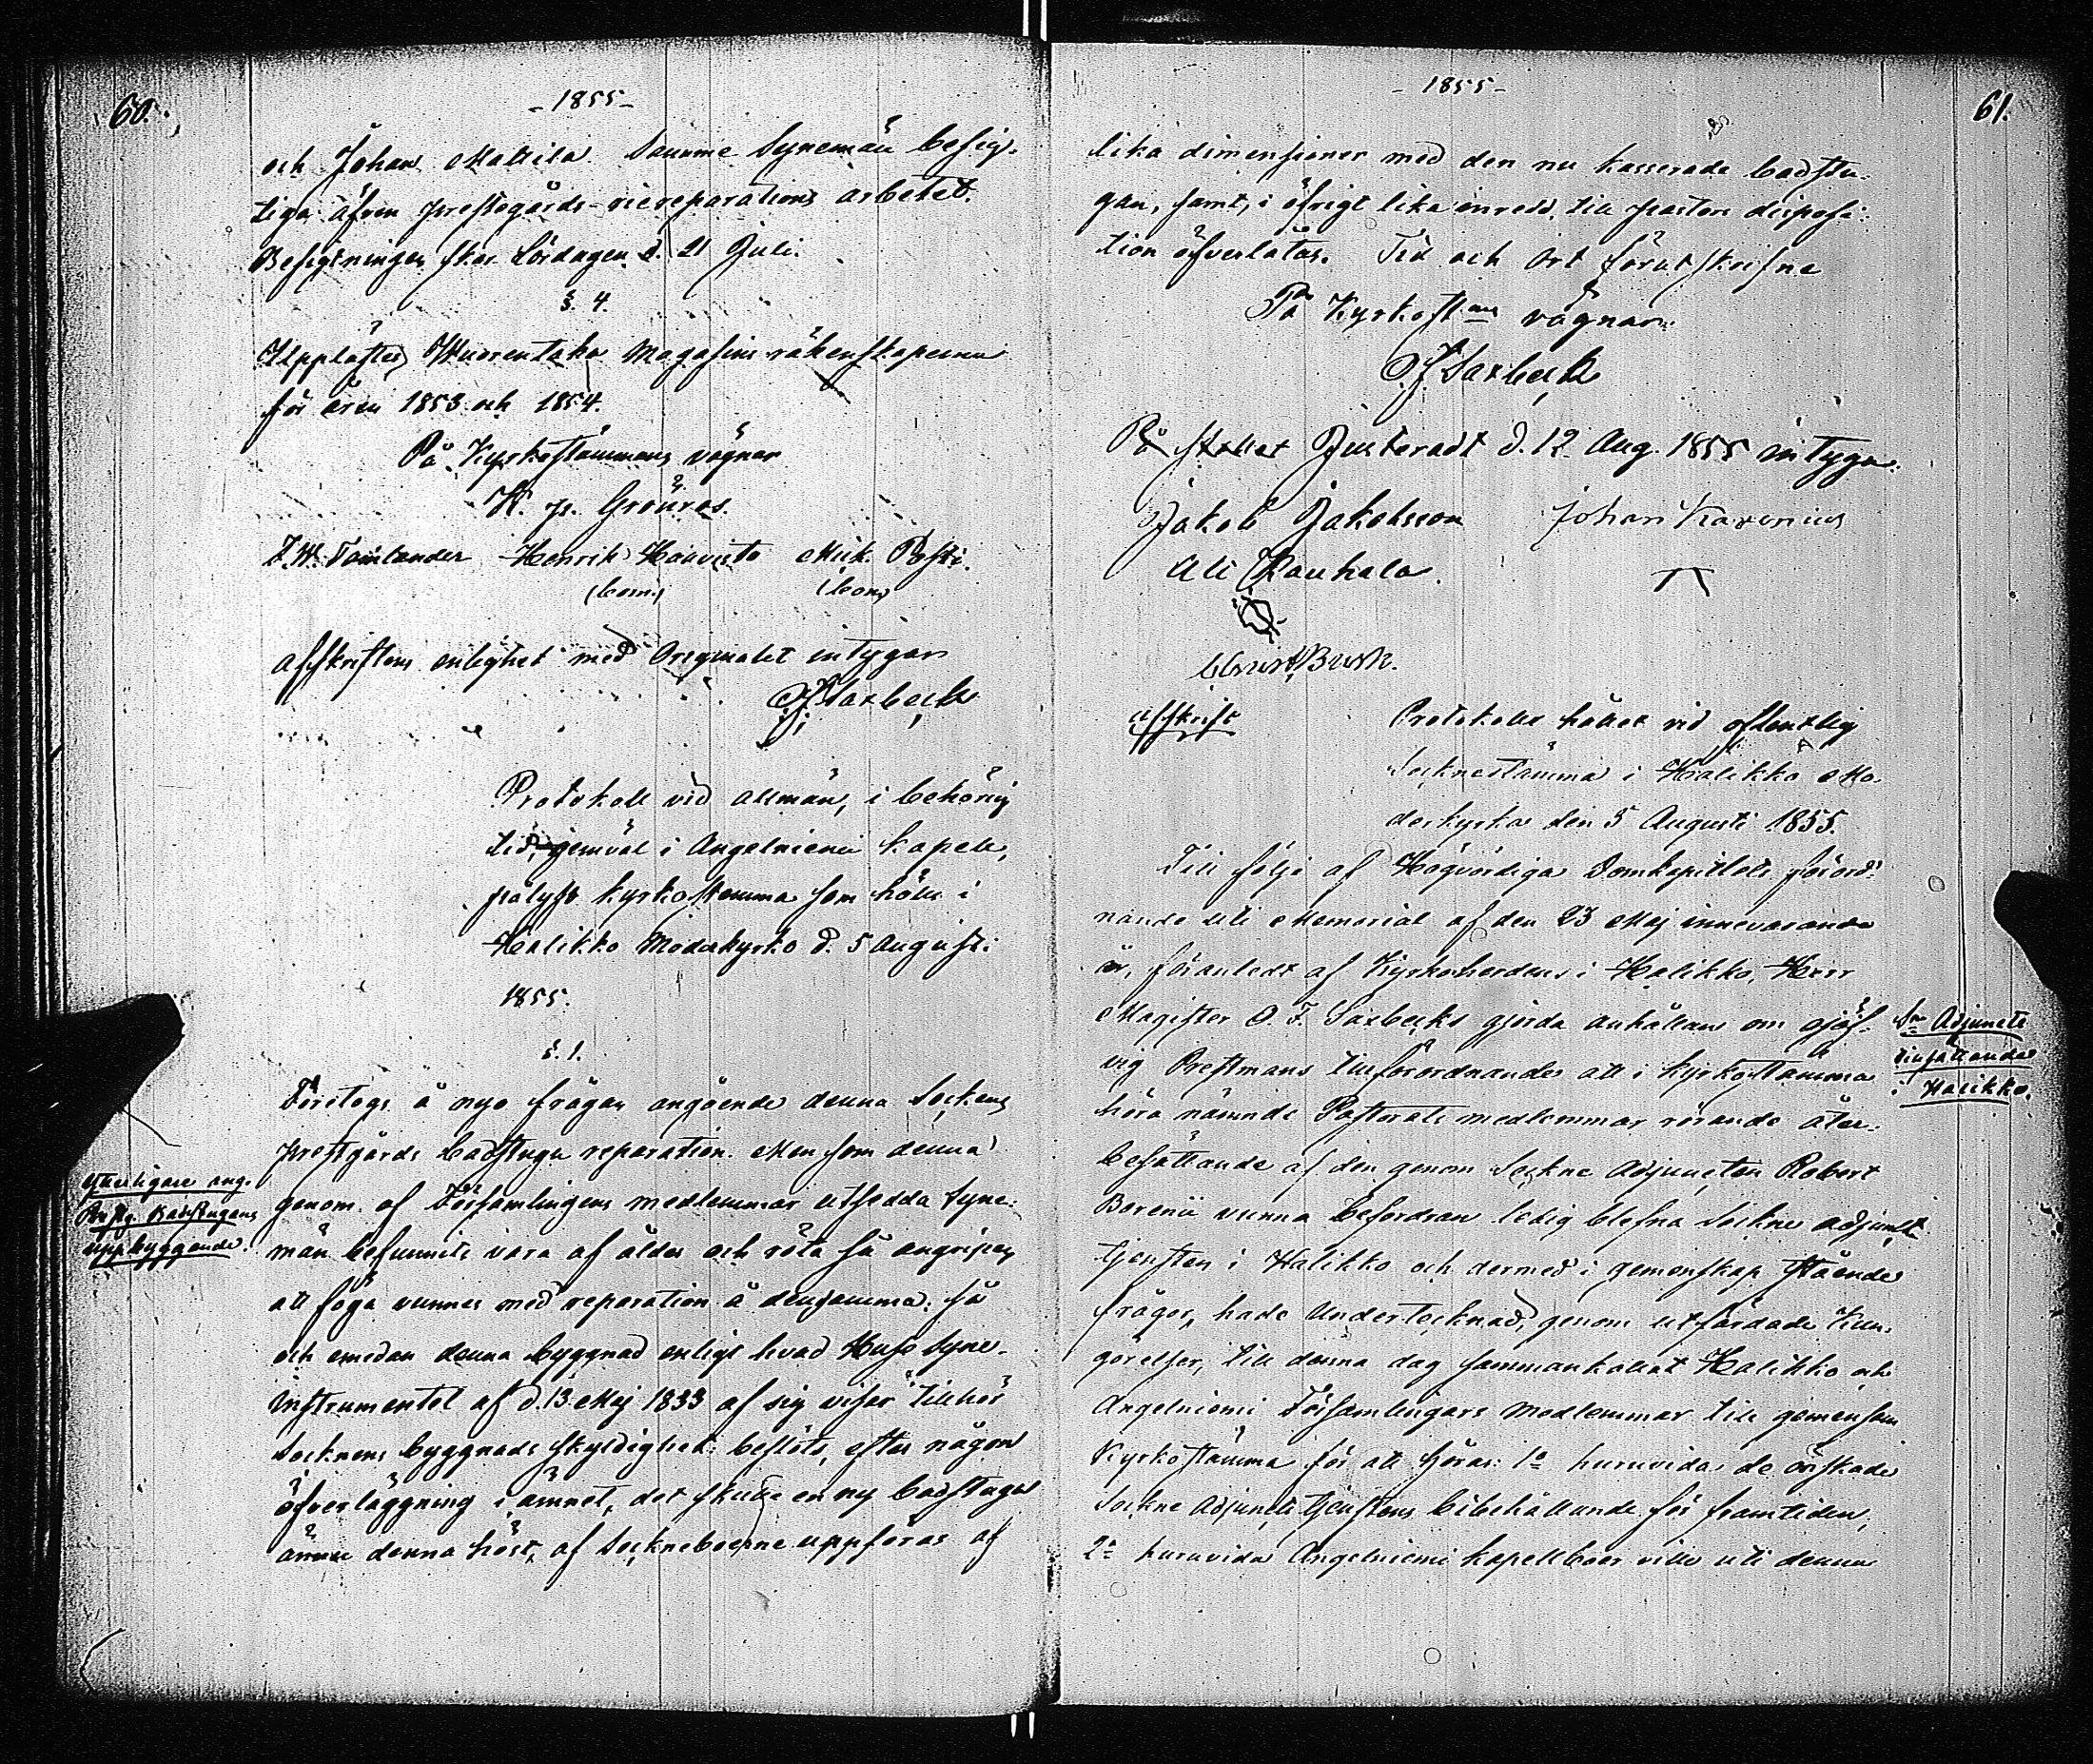 60.
- 1855 -
och Johan Mattila. Samme Synemän besig-
tiga äfven prestegårds-riereparations arbetet.
Besigtningen sker Lördagen d. 21 Juli.
§. 4.
Upplästes Wuorentaka Magasins räkenskaperna
för åren 1853 och 1854.
På Kyrkostämmans vägnar
W. Grönros.
Henrik Haavisto Mik. Posti.
(bom.) (bom)
Afskriftens enlighet med Originalet intygar
O F Saxbeck
Protokoll vid allmän, i behörig
tid, jemväl i Angelniemi Kapell,
pålyst kyrkostämma som hölls i
Halikko Moderkyrko d. 5 Augusti
1855.
§. 1.
Företogs å nyo frågan angående denna Sockens
prestgårds badstugu reparation. Men som denna
ytterligare ang.
Prestg. Badstugans
uppbyggande.
genom af Församlingens medlemmar utsedda Syne-
män befunnits vara af ålder och röta så angripen
att föga vunnes med reparation å densamma: så
och emedan denna byggnad enligt hvad Huse Syne-
instrumentet af d. 13 Maj 1833 af sig visar tillhör
Socknens byggnads skyldighet: beslöts, efter någon
öfverläggning i ämnet, det skulle en ny badstuga
ännu denna höst, af Sockneboerne uppföras af
61.
- 1855 -
lika dimensioner med den nu kasserade badstu-
gan, samt, i öfrigt lika inredd, till pastors disposi-
tion öfverlåtas. Tid och Ort förutskrifne
På Kyrkost:ans vägnar
O F Saxbeck
På stället Justeradt d. 12 Aug. 1855 intyga:
Jakob Jakobsson Johan Karenius
Ali Raukala.
Afskrift
Protokoll hållet vid offentlig
Socknestämma i Halikko Mo-
derkyrka den 5 Augusti 1855.
Till följe af Högvördiga Domkapitlets förord-
nande uti Memorial af den 23 Maj innevarande
år, föranledt af Kyrkoherdens i Halikko, Herr
Magister O. F. Saxbecks gjorda anhållan om ojäf-
vig Prestmans tillförordnande att i kyrkostämma
S:ne Adjuncts
tillsättande
i Halikko.
höra nämnde Pastorats medlemmar rörande åter-
besättande af den genom Sockne Adjuncten Robert
Borenii vunna befordran ledig blefna Sockne adjuncts
tjensten i Halikko och dermed i gemenskap stående
frågor, hade Undertecknad, genom utfärdade Kun-
görelser, till denna dag sammankallat Halikko och
Angelniemi Församlingars Medlemmar till gemensam
Kyrkostämma för att höras: 1o huruvida de önskade
Sockne Adjuncts tjenstens bibehållande för framtiden,
2o huruvida Angelniemi kapellboer ville uti denna